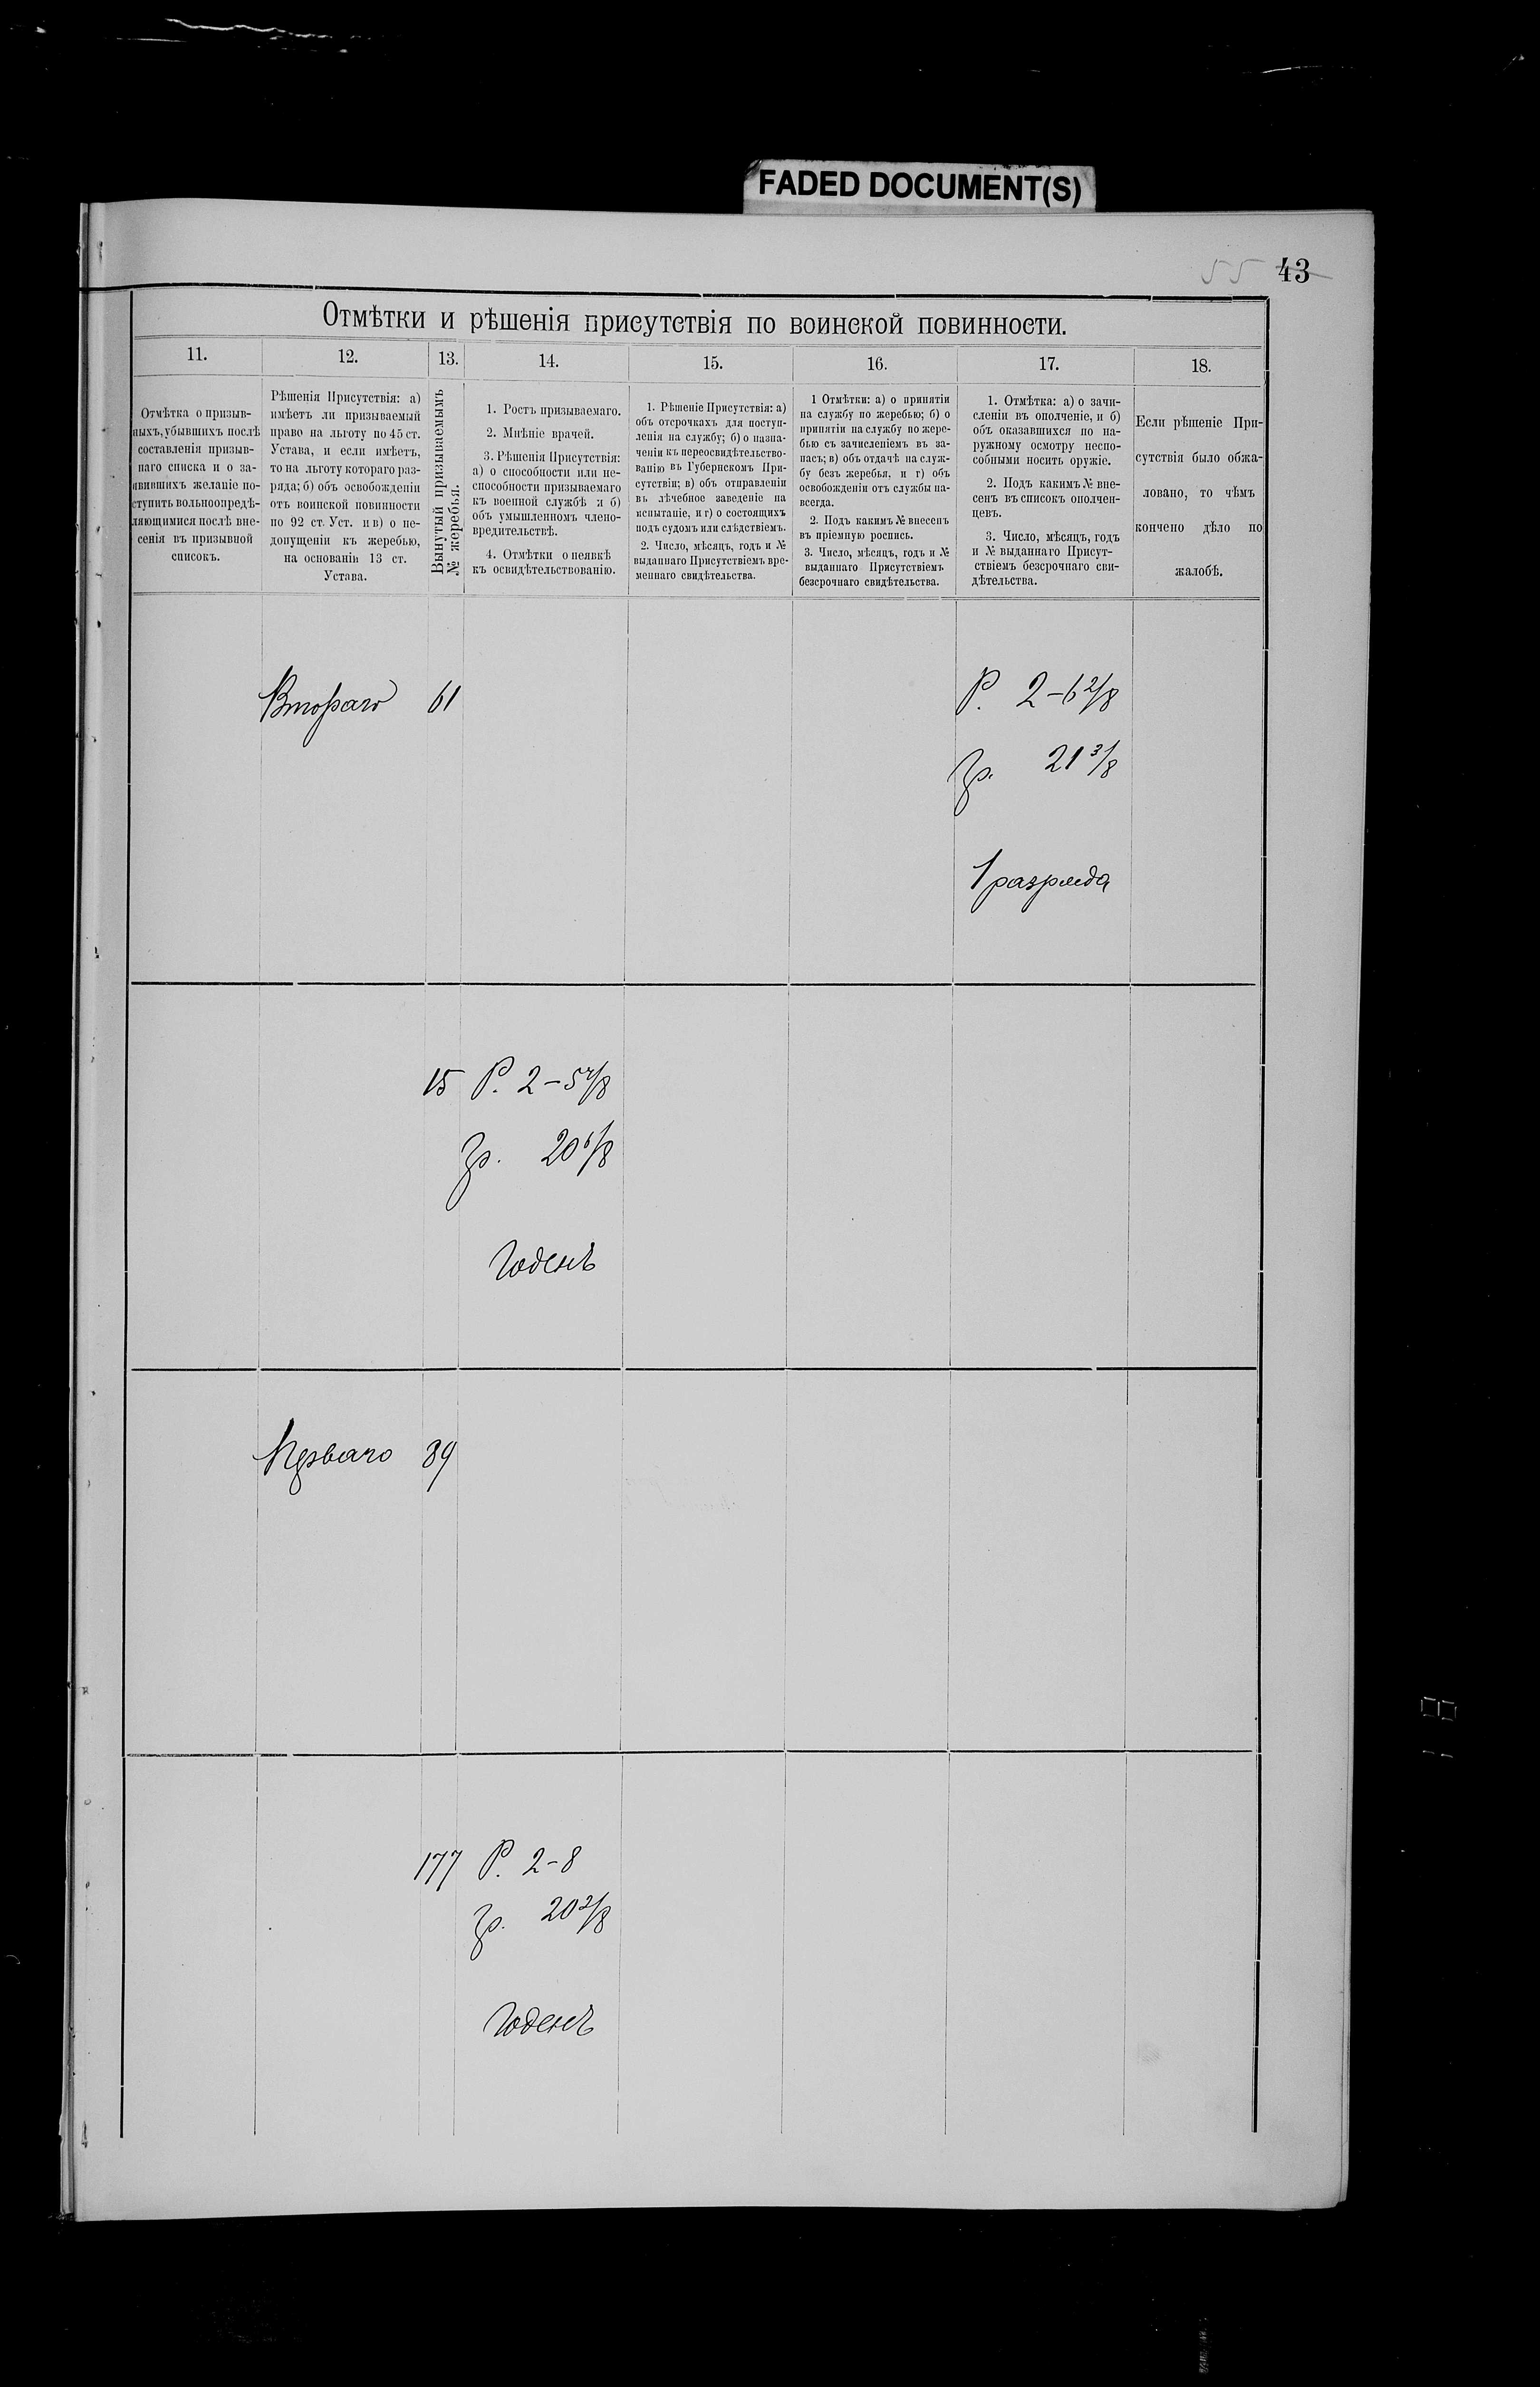 FADED DOCUMENT(S)
55 43
Отмѣтки и рѣшенія присутствія по воинской повинности.
11.
12.
13.
14.
15.
16.
17.
18.
Отмѣтка о призыв-
ныхъ, убывшихъ послѣ
составленія призыв-
наго списка и о за-
явившихъ желаніе по-
ступить вольноопредѣ-
ляющимися послѣ вне-
сенія въ призывной
списокъ.
Рѣшенія Присутствія: а)
имѣетъ ли призываемый
право на льготу по 45 ст.
Устава, и если имѣетъ,
то на льготу котораго раз-
ряда; б) объ освобожденіи
отъ воинской повинности
по 92 ст. Уст. и в) о не-
допущеніи къ жеребью,
на основаніи 13 ст.
Устава.
Вынутый призываемымъ
№ жеребья.
1. Ростъ призываемаго.
2. Мнѣніе врачей.
3. Рѣшенія Присутствія:
а) о способности или не-
способности призываемаго
къ военной службѣ и б)
объ умышленномъ члено-
вредительствѣ.
4. Отмѣтки о неявкѣ
къ освидѣтельствованію.
1. Рѣшеніе Присутствія: а)
объ отсрочкахъ для поступ-
ленія на службу; б) о назна-
ченіи къ переосвидѣтельство-
ванію въ Губернскомъ При-
сутствіи; в) объ отправленіи
въ лѣчебное заведеніе на
испытаніе, и г) о состоящихъ
подъ судомъ или слѣдствіемъ.
2. Число, мѣсяцъ, годъ и №
выданнаго Присутствіемъ вре-
меннаго свидѣтельства.
1 Отмѣтки: а) о принятіи
на службу по жеребью; б) о
принятіи на службу по жере-
бью съ зачисленіемъ въ за-
пасъ; в) объ отдачѣ на служ-
бу безъ жеребья, и г) объ
освобожденіи отъ службы на-
всегда.
2. Подъ какимъ № внесенъ
въ пріемную роспись.
3. Число, мѣсяцъ, годъ и №
выданнаго Присутствіемъ
безсрочнаго свидѣтельства.
1. Отмѣтка: а) о зачи-
сленіи въ ополченіе, и б)
объ оказавшихся по на-
ружному осмотру неспо-
собными носить оружіе.
2. Подъ какимъ № вне-
сенъ въ списокъ ополчен-
цевъ.
3. Число, мѣсяцъ, годъ
и № выданнаго Присут-
ствіемъ безсрочнаго сви-
дѣтельства.
Если рѣшеніе При-
сутствія было обжа-
ловано, то чѣмъ
кончено дѣло по
жалобѣ.
Втораго 61 Р. 2-6 2/8
Гр. 21 3/8
1 разряда
15 Р. 2-5 4/8
Гр. 20 6/8
Годенъ
Перваго 39
177 Р. 2-8
Гр. 20 2/8
Годенъ